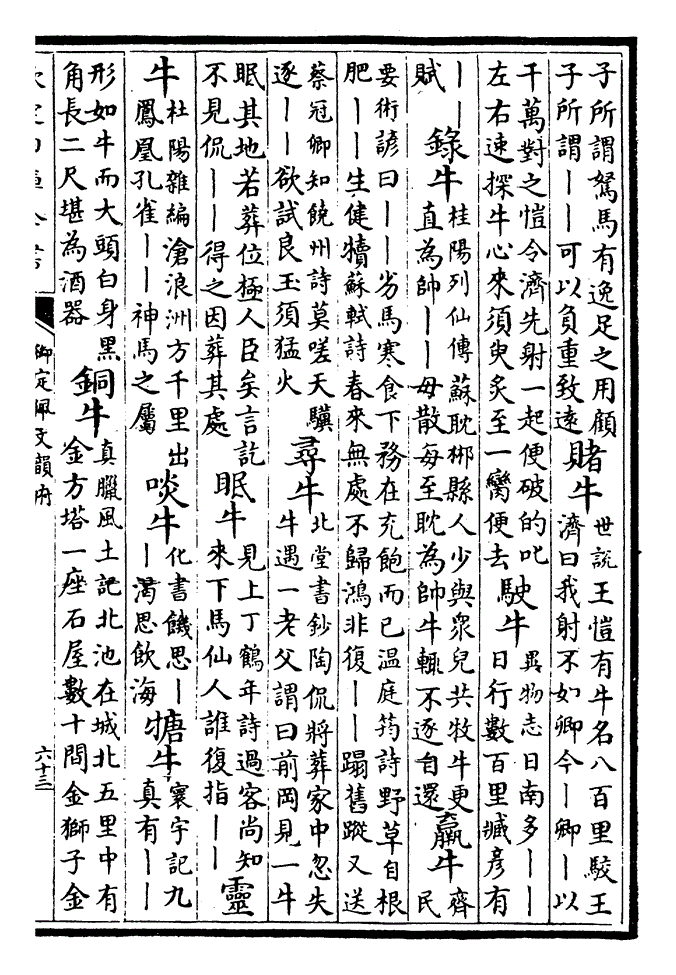 子所謂駑馬有逸足之用顧
子所謂——可以負重致遠
賭牛
世説王愷有牛名八百里駮王
濟曰我射不如卿今—卿—以
千萬對之愷令濟先射一起便破的叱
左右速探牛心來須臾炙至一臠便去
駛牛
異物志日南多——
日行數百里臧彦有
——
賦
錄牛
桂陽列仙傳蘇耽郴縣人少與衆兒共牧牛更
直為帥——毋散每至耽為帥牛輒不逐自還
羸牛
齊
民
要術諺曰——劣馬寒食下務在充飽而已温庭筠詩野草自根
肥——生健犢蘇軾詩春來無處不歸鴻非復——蹋舊蹤又送
蔡冠卿知饒州詩莫嗟天驥
逐——欲試良玉須猛火
尋牛
北堂書鈔陶侃將葬家中忽失
牛遇一老父謂曰前岡見一牛
眠其地若葬位極人臣矣言訖
不見侃——得之因葬其處
眠牛
見上丁鶴年詩過客尚知
來下馬仙人誰復指——
靈
牛
杜陽雜編滄浪洲方千里出
鳳凰孔雀——神馬之屬
啖牛
化書饑思—
—渴思飲海
㹔牛
寰宇記九
真有——
形如牛而大頭白身黑
角長二尺堪為酒器
銅牛
真臘風土記北池在城北五里中有
金方塔一座石屋數十間金獅子金
御定佩文韻府
六十三